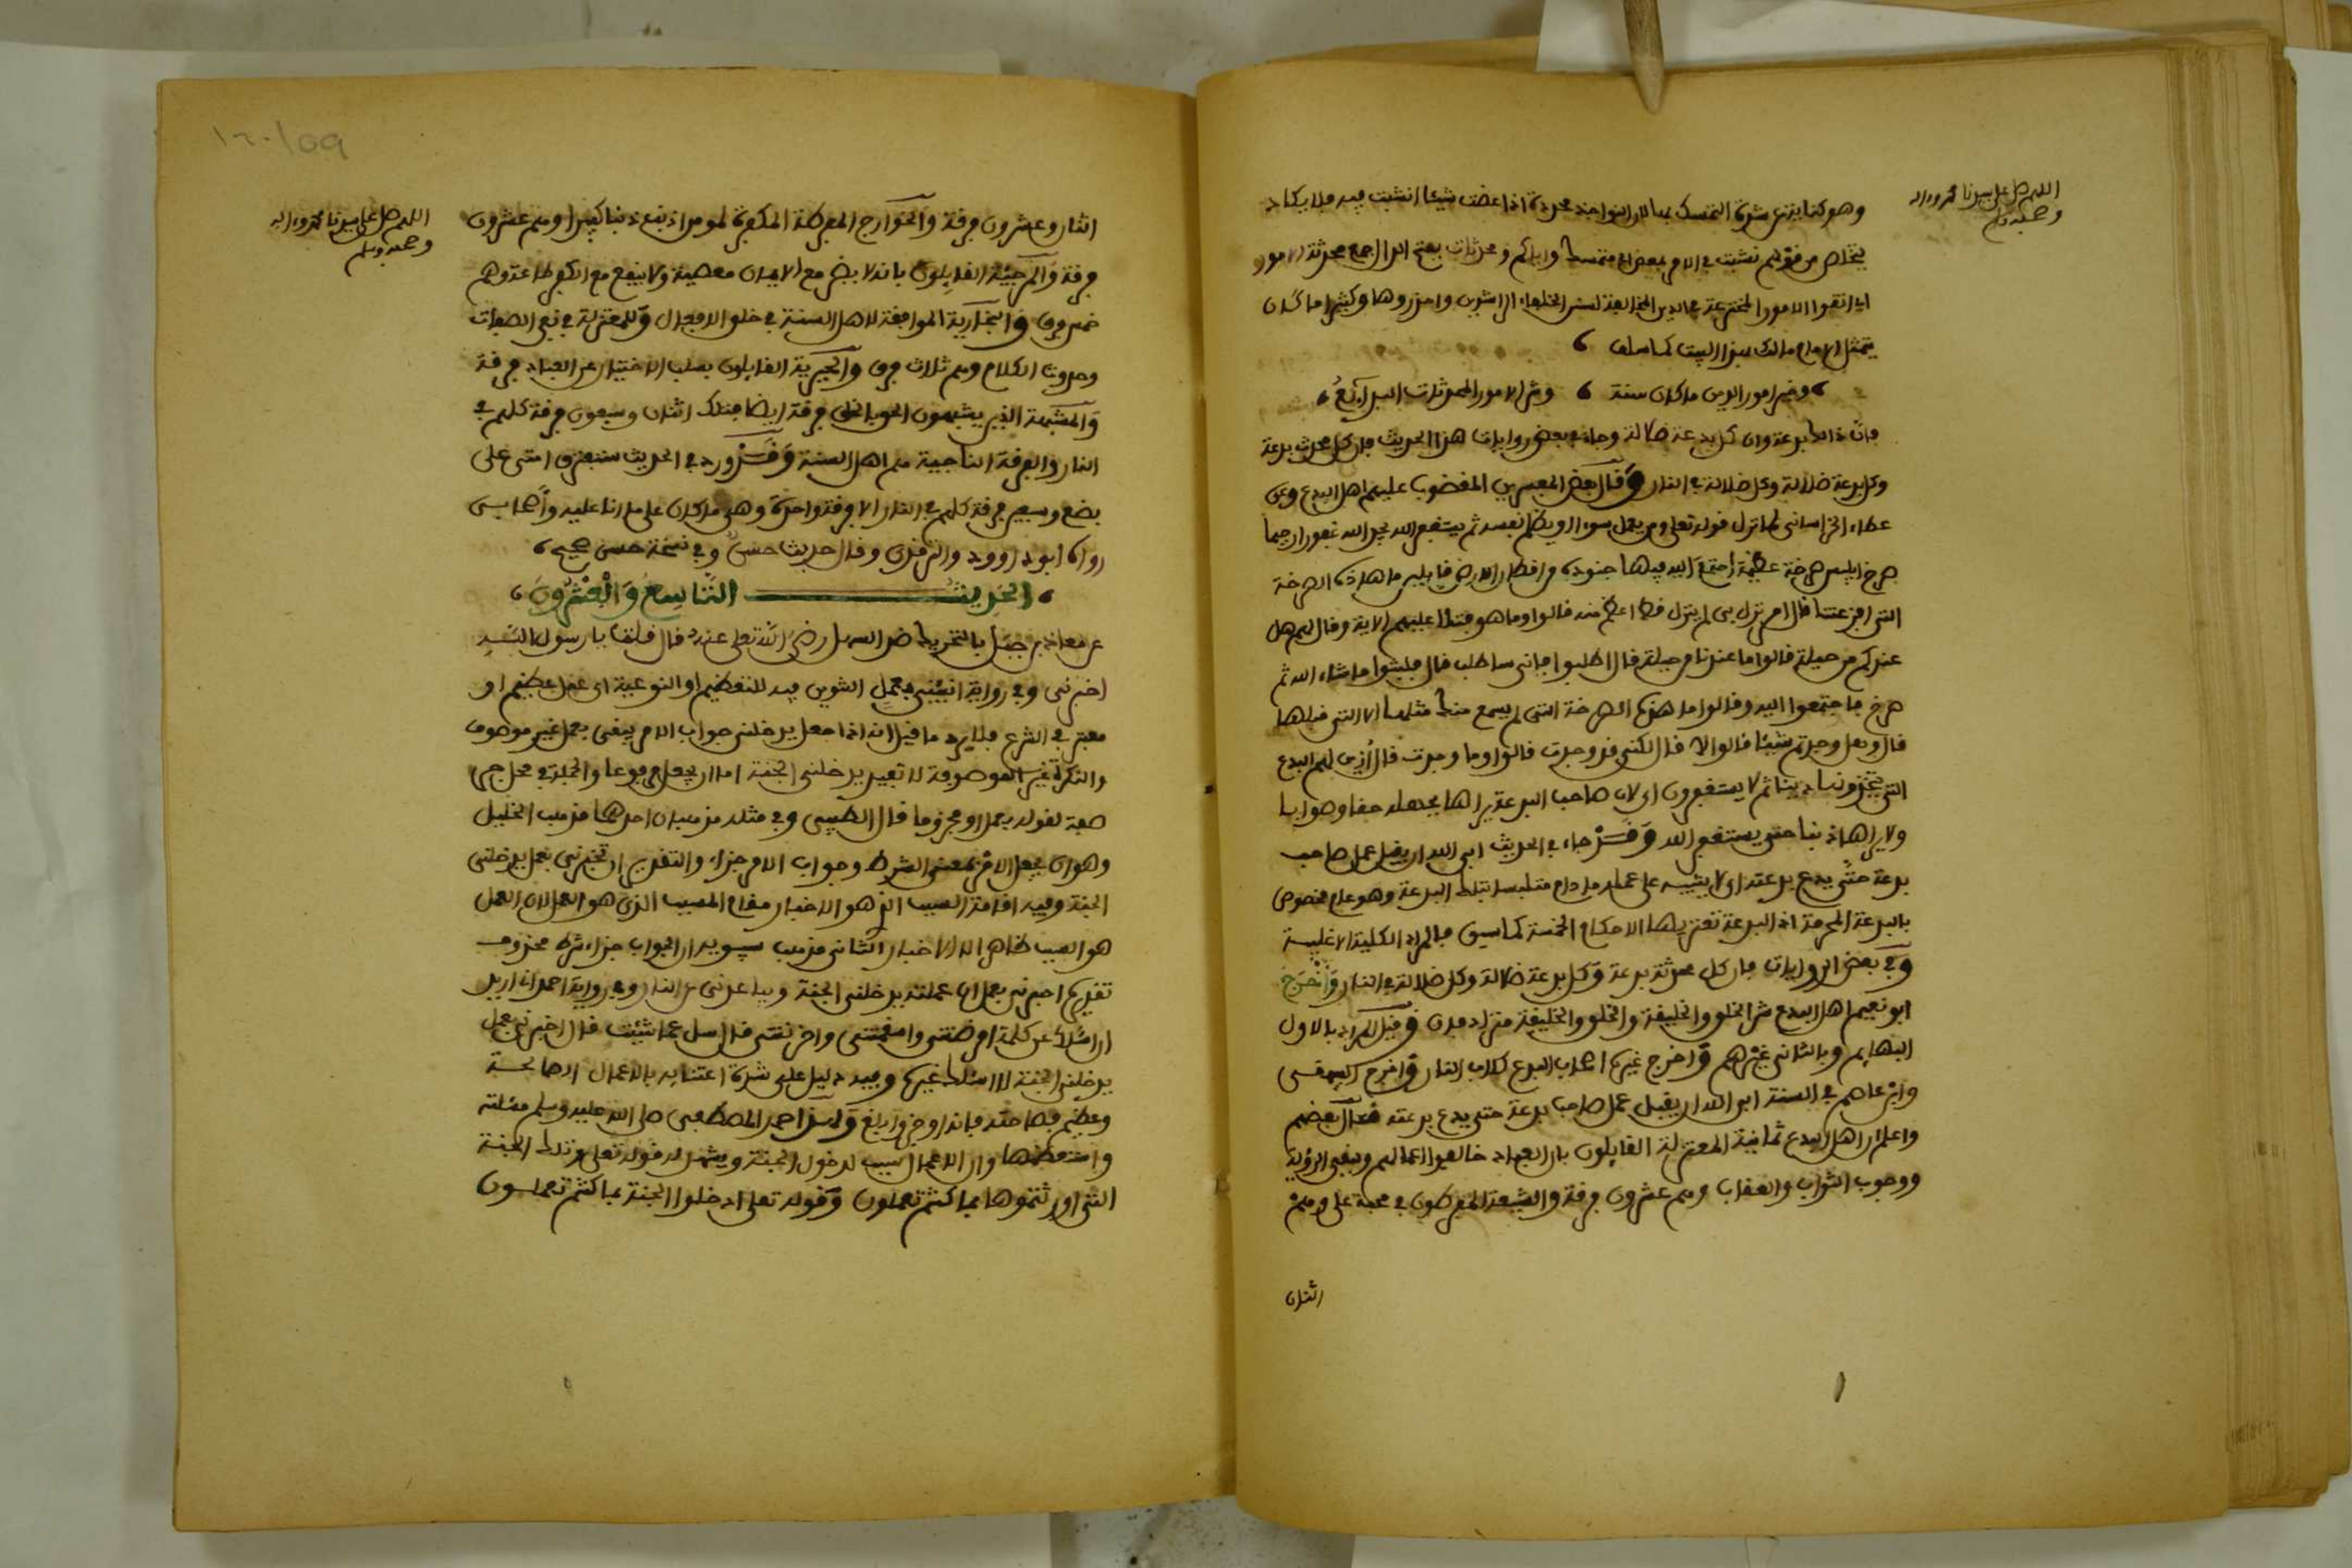 اللهم صل على سيدنا محمد وءاله
وصحبه وسلم
وهو كناية عن شدة التمسك بها لان النواجذ محددة اذا عضت شيئا انشبت فيه فلا يكاد
يتخلص من
اي اتقوا الامور المخترعة في الدين المخالفة لسنن الخلفاء الراشدين واحذروها وكثيرا ما كان
يتمثل الامام مالك بهذا البيت كما سلف
وخير امور الدين ما كان سنة وشر الامور المحدثات البدائع
فان ذالك بدعة وان كل بدعة ضلالة وجاء في بعض روايات هذا الحديث فان كل محدث بدعة
وكل بدعة ضلالة وكل ضلالة في النار وقال بعض المفسرين المغضوب عليهم اهل البدع وعن
عطاء الخراساني لما نزل قوله تعلى ومن يعمل سوءا او يظلم نفسه ثم يستغفر الله يجد الله غفورا رحيما
صرخ ابليس صرخة عظيمة اجتمع اليه فيها جنوده من افطار الارض قايلين ما هذه الصرخة
التي افزعتنا قال امر نزل بي لم ينزل قط اعظم منه قالوا وما هو فتلا عليهم الاية وقال لهم هل
عندكم من حيلة قالوا ما عندنا من حيلة قال اطلبوا فاني ساطلب قال فلبثوا ما شاء الله ثم
صرخ فاجتمعوا اليه وقالوا ما هذه الصرخة التي لم يسمع منك مثلها الا التي قبلها
قال وهل وجدتم شيئا قالوا لا قال لكني قد وجدت قالوا وما وجدت قال ازين لهم البدع
التي يتخذونها دينا ثم لا يستغفرون اي لان صاحب البدعة يراها بجهله حقا وصوابا
ولا يراها ذنبا حتى يستغفر الله وقد جاء في الحديث ابى الله ان يقبل عمل صاحب
بدعة حتى يدع بدعته اي لا يثيبه على عمله ما دام متلبسا بتلك البدعة وهو عام مخصوص
بالبدعة المحرمة اذ البدعة تعتريها الاحكام الخمسة كما سبق فالمراد الكلية الاغلبية
وفي بعض الروايات فان كل محدثة بدعة وكل بدعة ضلالة وكل ضلالة في النار واخرج
ابو نعيم اهل البدع شر الخلق والخليقة والخلق والخليقة مترادفان وقيل المراد بالاول
البهايم وبالثاني غيرهم واخرج غيره اصحاب البدع كلاب النار واخرج البيهقي
وابن عاصم في السنة ابى الله ان يقبل عمل صاحب بدعة حتى يدع بدعته قال بعضهم
واعلم ان اهل البدع ثمانية المعتزلة القايلون بان العباد خالقوا اعمالهم وبنفي الرؤية
ووجوب الثواب والعقاب وهم عشرون فرقة والشيعة المفرطون في محبة علي وهم
اثنان
١٦٠/٥٩
اللهم صل على سيدنا محمد وءاله
وصحبه وسلم
اثنان وعشرون فرقة والخوارج المفرطة المكفرة لمومن اذنب ذنبا كبيرا وهم عشرون
فرقة والمرجئة القايلون بانه لا يضر مع الايمان معصية ولا ينفع مع الكفر طاعة وهم
خمس فرق والنجارية الموافقة لاهل السنة في خلق الافعال وللمعتزلة في نفي الصفات
وحدوث الكلام وهم ثلاث فرق والجبرية القايلون بسلب الاختيار عن العباد فرقة
والمشبهة الذين يشبهون الحق بالخلق فرقة ايضا فتلك اثنان وسبعون فرقة كلهم في
النار والفرقة الناجية هم اهل السنة وقد ورد في الحديث ستفترق امتي على
بضع وسبعين فرقة كلهم في النار الا فرقة واحدة وهي ما كان على ما انا عليه واصحابي
رواه ابو داوود والترمذي وقال حديث حسن وفي نسخة حسن صحيح
الحديث التاسع والعشرون
عن معاذ بن جبل بالتحريك ضد السهل رضي الله تعلى عنه قال قلت يا رسول الله
اخبرني وفي رواية انبئني بعمل التنوين فيه للتعظيم او النوعية اي عمل عظيم او
معتبر في الشرع فلا يرد ما قيل انه اذا جعل يدخلني جواب الامر يبقى بعمل غير موصوف
والنكرة غير الموصوفة لا تفيد يدخلني الجنة اما ان يجعل مرفوعا والجملة في محل جر
صفة لقوله بعمل او مجزوما قال الطيبي وفي مثله مذهبان احدهما مذهب الخليل
وهو ان يجعل الامر بمعنى الشرط وجواب الامر جزاء والتقدير ان تخبرني بعمل يدخلني
الجنة وفيه اقامة السبب الذي هو الاخبار مقام المسبب الذي هو العمل لان العمل
هو السبب ظاهرا لا الاخبار الثاني مذهب سيبويه ان الجواب جزاء شرط محذوف
تقديره اخبرني بعمل ان عملته يدخلني الجنة ويباعدني من النار وفي رواية احمد اني اريد
ان اسئلك عن كلمة امرضتني واسقمتني واحزنتني قال سل عما شئت قال اخبرني بعمل
يدخلني الجنة لا اسئلك غيره وفيه دليل على شدة اعتنايه بالاعمال الصالحة
وعظيم فصاحته فانه اوجز وابلغ ولذا حمد المصطفى صلى الله عليه وسلم مسئلته
واستعظمها وان الاعمال سبب لدخول الجنة ويشهد له قوله تعلى وتلك الجنة
التي اورثتموها بما كنتم تعملون وقوله تعلى ادخلوا الجنة بما كنتم تعملون